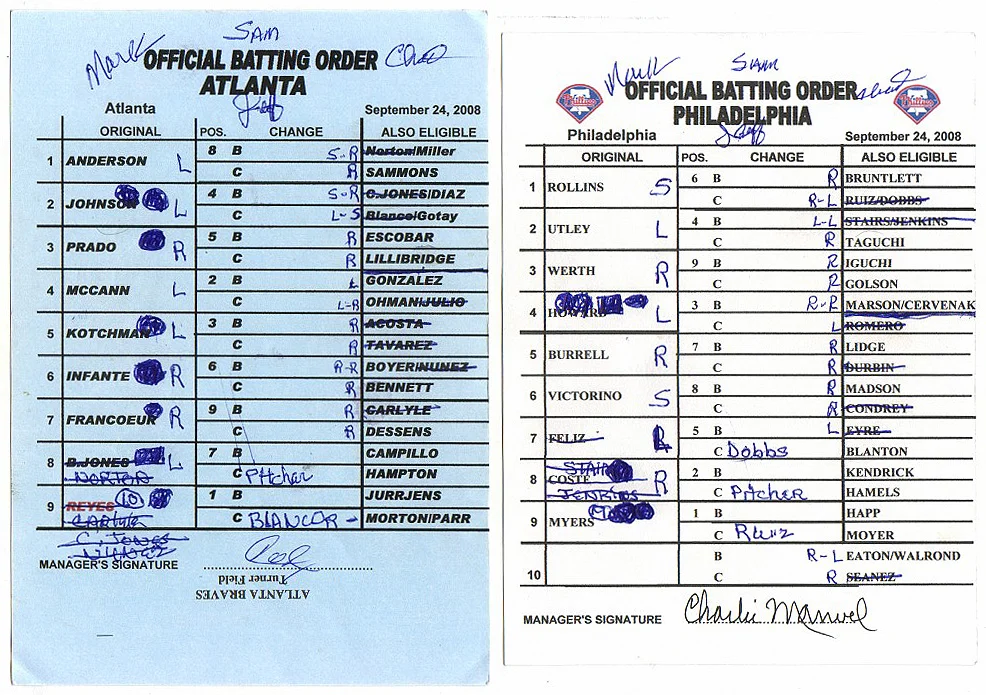 Mark SAM Chad
OFFICIAL BATTING ORDER
ATLANTA
Jeff
Atlanta September 24, 2008
ORIGINAL POS. CHANGE ALSO ELIGIBLE
1 ANDERSON L 8 B S-R Norton/Miller
C R SAMMONS
2 JOHNSON L 4 B S-R C.JONES/DIAZ
C L-S Blanco/Gotay
3 PRADO R 5 B R ESCOBAR
C R LILLIBRIDGE
4 MCCANN L 2 B L GONZALEZ
C L-R OHMAN/JULIO
5 KOTCHMAN L 3 B R ACOSTA
C R TAVAREZ
6 INFANTE R 6 B R-R BOYER/NUNEZ
C R BENNETT
7 FRANCOEUR R 9 B R CARLYLE
C R DESSENS
8 B.JONES L 7 B CAMPILLO
NORTON C Pitcher HAMPTON
9 REYES 10 1 B JURRJENS
CARLYLE C BLANCO R - MORTON/PARR
C. JONES
NUNEZ
MANAGER'S SIGNATURE
Turner Field
ATLANTA BRAVES
Mark SAM
OFFICIAL BATTING ORDER
PHILADELPHIA
Jeff
Phillies Phillies
Philadelphia September 24, 2008
ORIGINAL POS. CHANGE ALSO ELIGIBLE
1 ROLLINS S 6 B R BRUNTLETT
C R-L RUIZ/DOBBS
2 UTLEY L 4 B L-L STAIRS/JENKINS
C R TAGUCHI
3 WERTH R 9 B R IGUCHI
C R GOLSON
4 HOWARD L 3 B R-R MARSON/CERVENAK
C L ROMERO
5 BURRELL R 7 B R LIDGE
C R DURBIN
6 VICTORINO S 8 B R MADSON
C R CONDREY
7 FELIZ R 5 B L EYRE
C Dobbs BLANTON
STAIRS
8 COSTE R 2 B KENDRICK
JENKINS C Pitcher HAMELS
9 MYERS 1 B HAPP
C Ruiz MOYER
B R-L EATON/WALROND
10 C R SEANEZ
MANAGER'S SIGNATURE Charlie Manuel